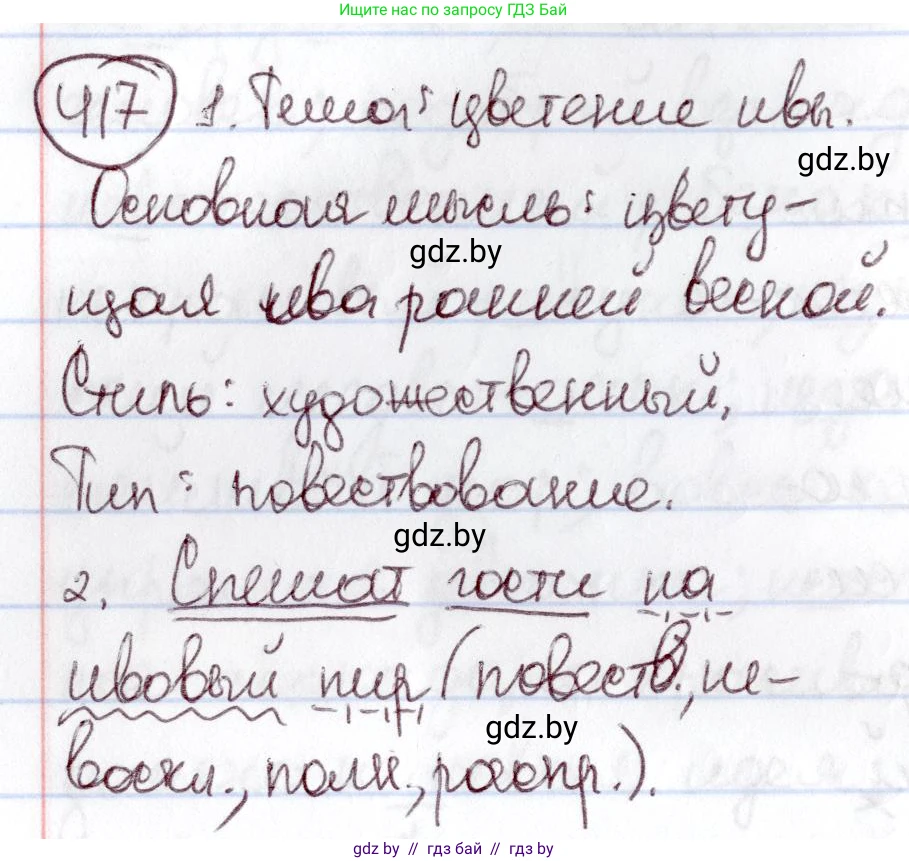 Ищите нас по запросу ГДЗ Бай
417 1. Тема: цветение ивы.
gdz.by
Основная мысль: цвету-
gdz.by
щая ива ранней весной.
Стиль: художественный,
Тип: повествование.
gdz.by
2. Спешат гости на
ивовый пир (повеств., не-
gdz.by
воскл., полн., распр.).
gdz by // гдз бай // гдз by